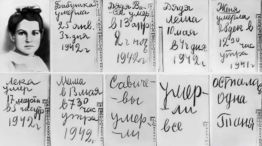 Бабушка
умерла
25 янв.
3ч. дня
1942 г
Дядя Ва-
ся умер
в 13 апр
2ч ноч
1942 г
Дядя
Леша
10 мая
в 4ч дня
1942 г
Женя
умерла
28 дек в
12 30
час
утра
1941 г
Лека
умер
17 марта
1942 г
Мама
в 13 мая
в 7 30
час
утра
1942 г
Савиче-
вы
умер-
ли
умер-
ли
все
осталась
одна
Таня